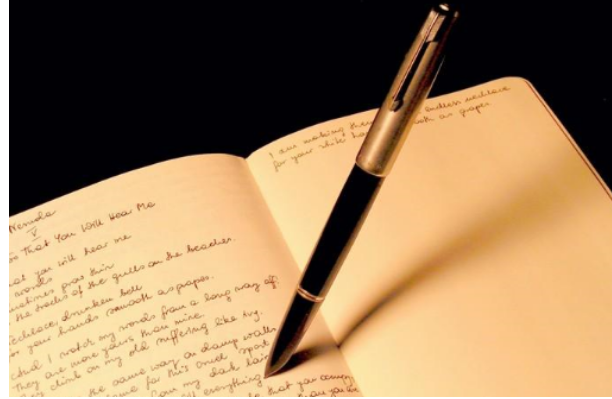 Neruda
V
So That You Will Hear Me
that you will hear me
words
sometimes grow thin
the tracks of the gulls on the beaches.
Necklace, drunken bell
for your hands smooth as grapes.
And I watch my words from a long way off.
They are more yours than mine.
They climb on my old suffering like ivy.
the same way on damp walls
blame for this cruel sport.
from my dark lair
everything
that you
I am making them endless necklace
for your white smooth as grapes